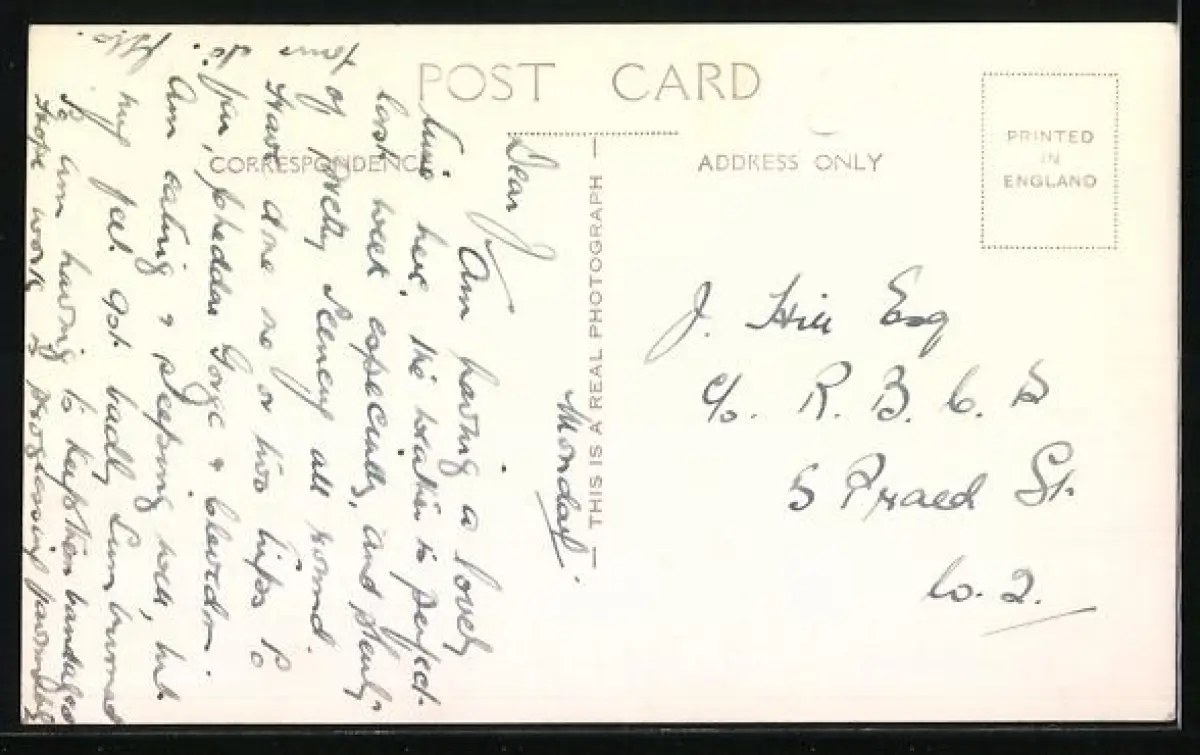 POST CARD
CORRESPONDENCE
ADDRESS ONLY
PRINTED
IN
ENGLAND
— THIS IS A REAL PHOTOGRAPH —
Monday.
Dear J
Am having a lovely
time here, the weather is perfect
last week especially, and plenty
of pretty scenery all round.
Have done one or two trips so
far, Cheddar Gorge & Clevedon.
Am eating & sleeping well, but
my feet got badly sun burned
so am having to keep them bandaged
Hope work is progressing favourably
J. Hill Esq
c/o. R. B. C. S
5 Praed St.
W. 2.